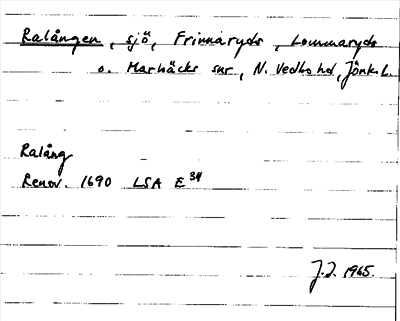 Ralången, sjö, Frinnaryds, Lommaryds
o. Marbäcks snr, N. Vedbo hd, Jönk.L.
Ralång
Renov. 1690 LSA E 34
J.J. 1965.